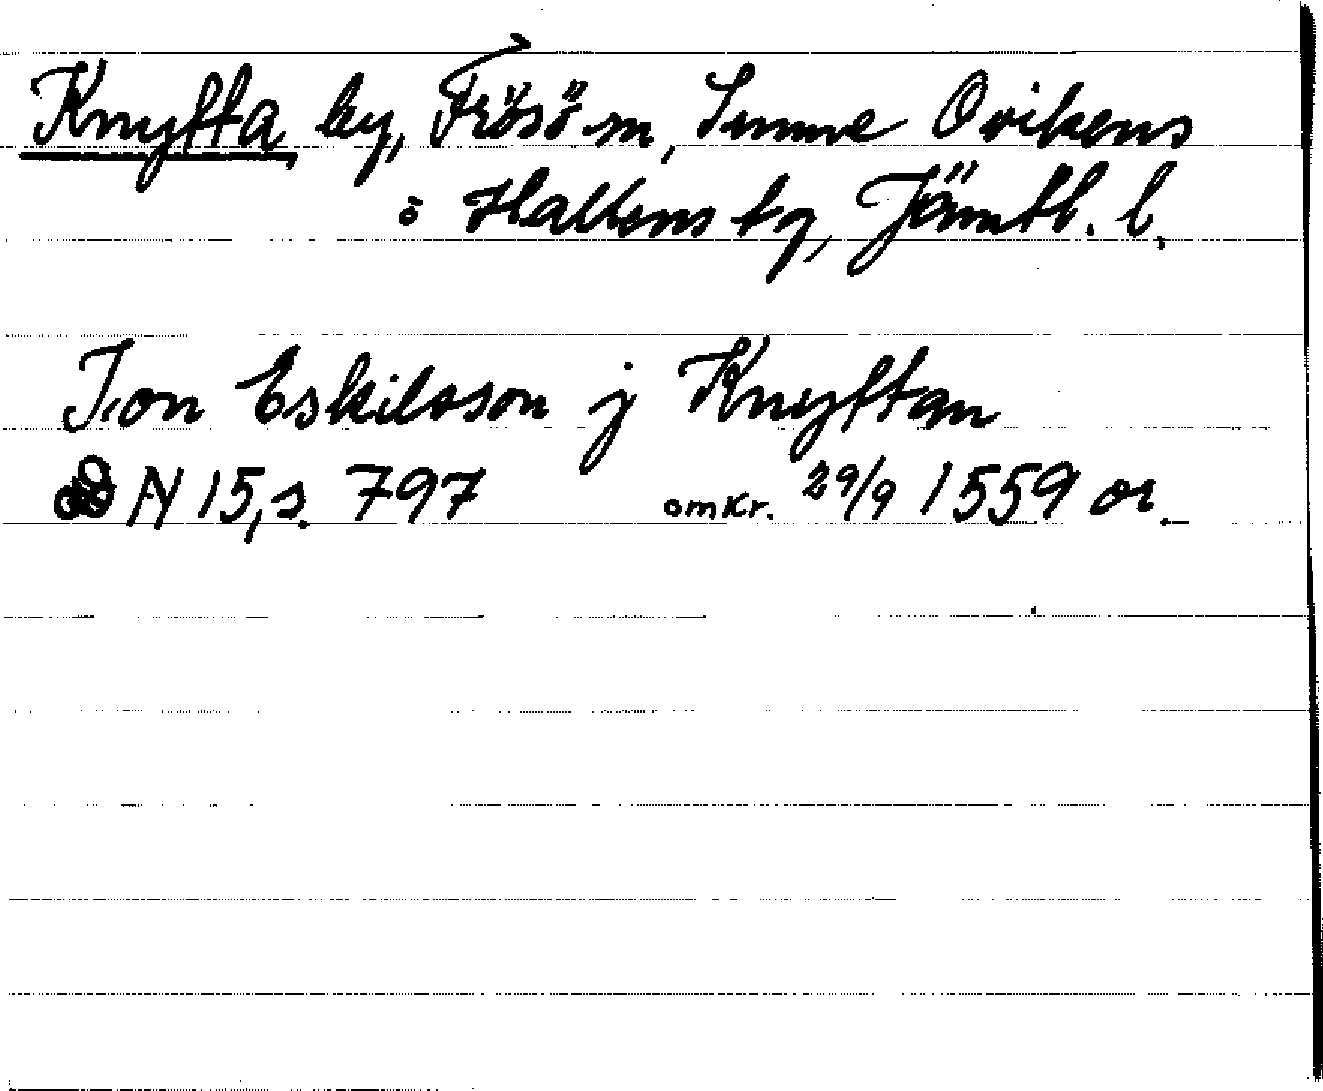 Knytta by, Frösö sn, Sunne Ovikens
o Hallens tg, Jämtl. l.
Jon Eskilsson j Knyttan
DN 15, s. 797 omkr. 29/9 1559 or.